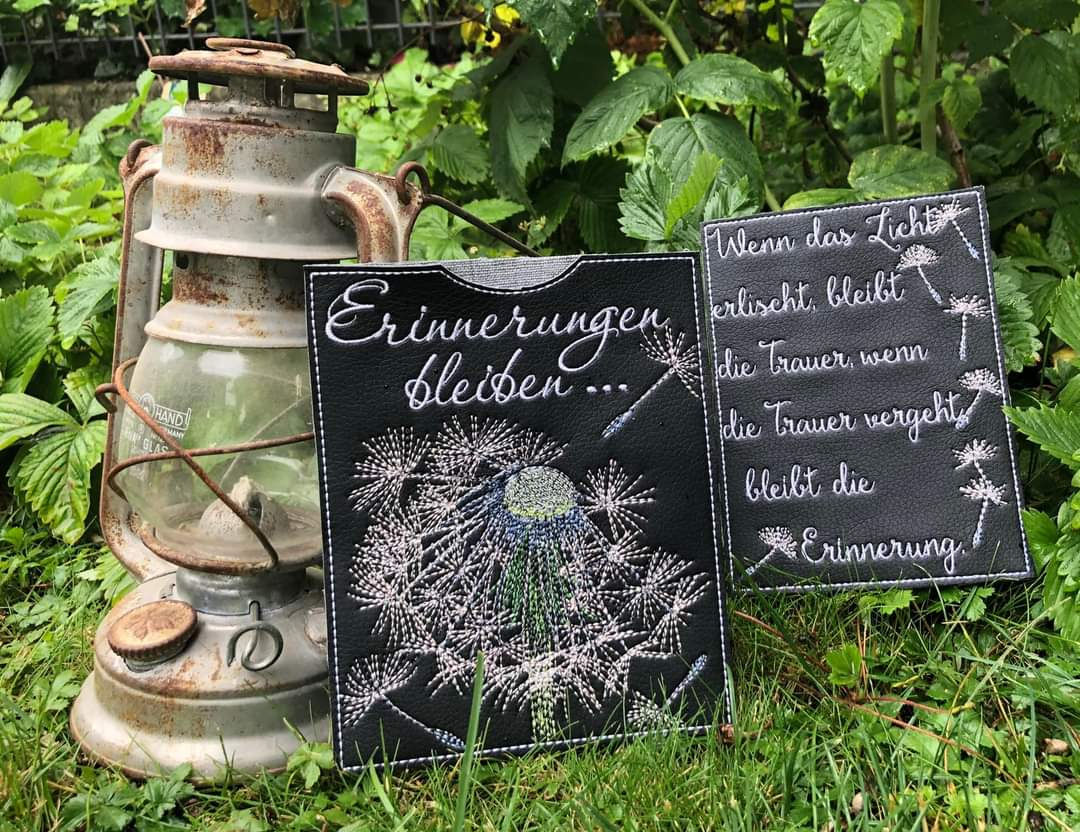 Erinnerungen
bleiben ...
Wenn das Licht
erlischt, bleibt
die Trauer, wenn
die Trauer vergeht,
bleibt die
Erinnerung.
HAND
GLAS